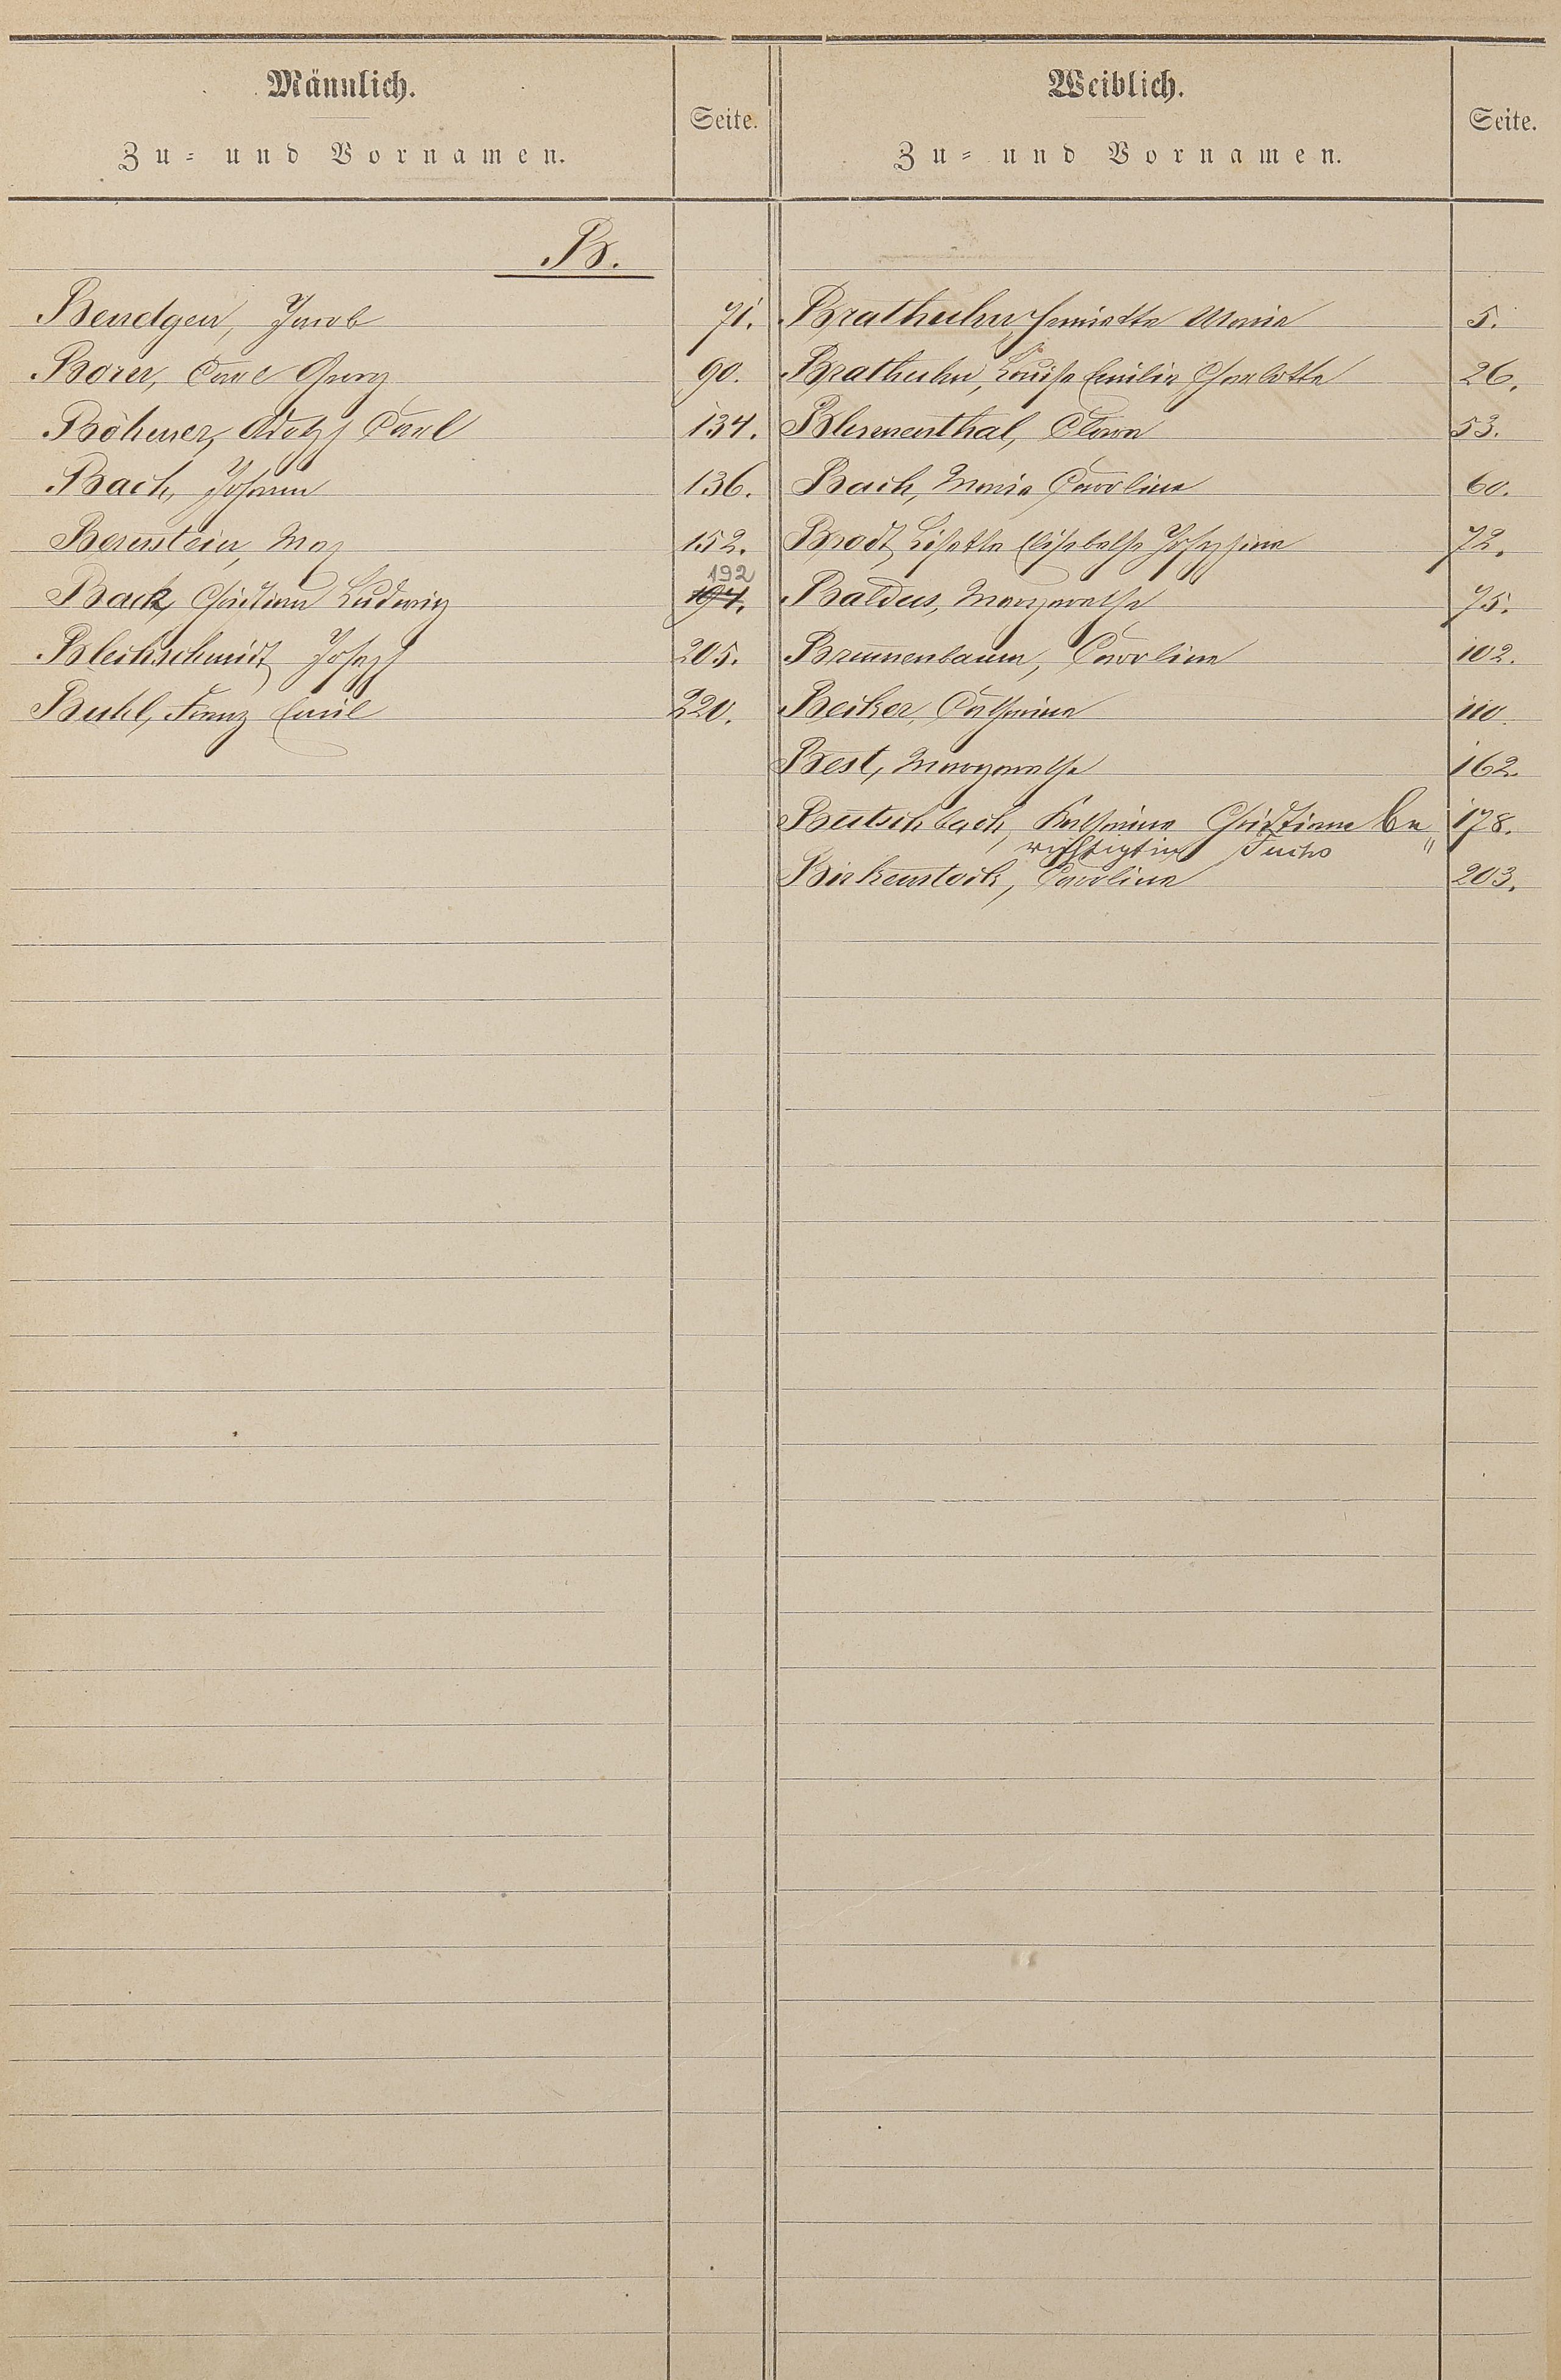 Männlich.
Zu- und Vornamen.
Seite.
Weiblich.
Zu- und Vornamen.
Seite.
B.
Bendgen, Jacob 71.
Borer, Carl Georg 90.
Böhmer, Adolph Carl 134.
Bach, Johann 136.
Berenstein, Max 152.
192
Back, Christian Ludwig 194.
Blechschmidt, Joseph 205.
Buhl, Franz Emil 220.
Brathuhn, Henriette Maria 5.
Brathuhn, Louise Emilie Charlotte 26.
Blumenthal, Clara 53.
Bach, Maria Caroline 60.
Brodt, Lisette Elisabethe Josephine 72.
Baldus, Margarethe 75.
Brunnenbaum, Caroline 102.
Becker, Catharina 110.
Best, Margarethe 162.
Butschbach, Katharina Christiane be„ 178.
richtigt in Fuchs
Birkenstock, Caroline 203.